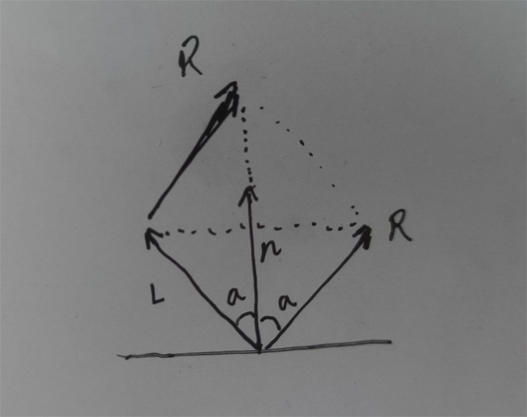 R
R
n
L
a a